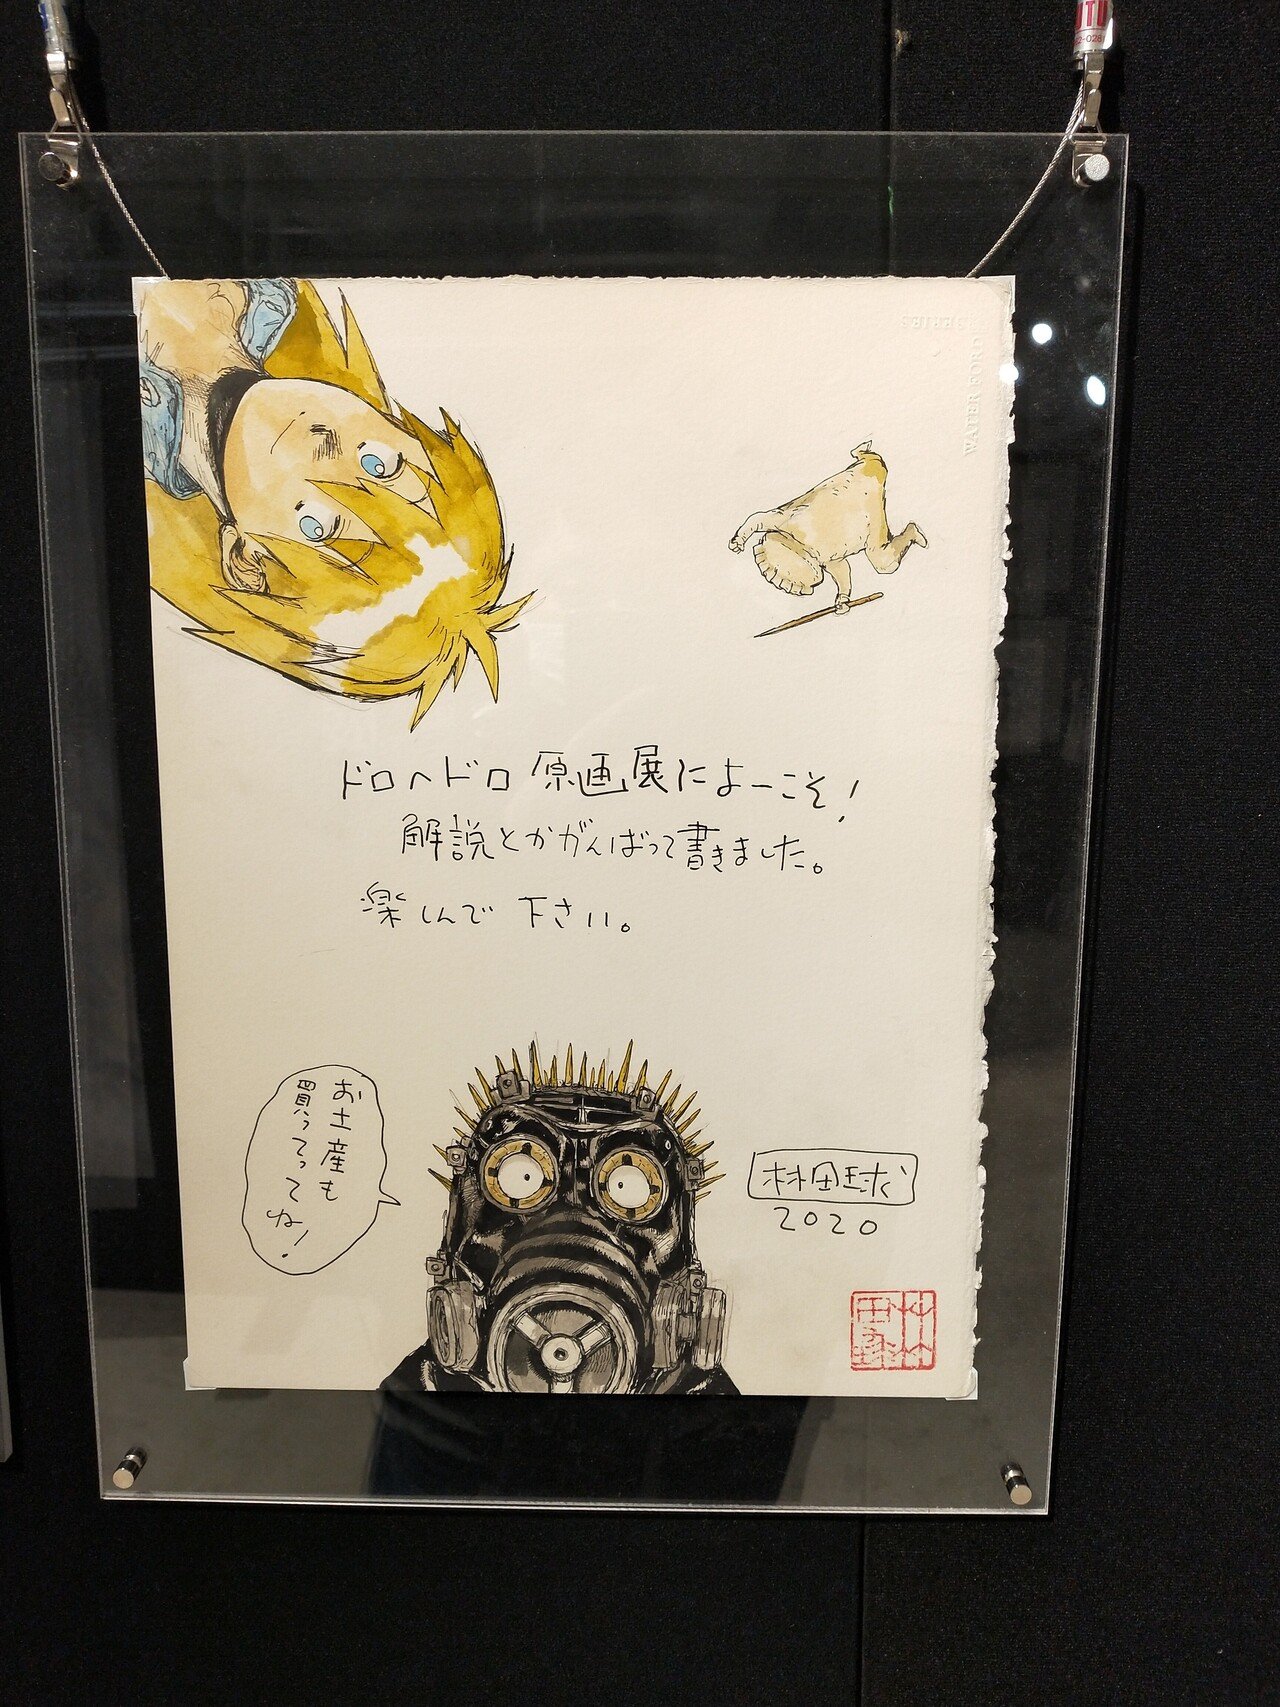 SERIES
WATERFORD
ドロヘドロ 原画展によーこそ!
解説とかがんばって書きました。
楽しんで 下さい。
お土産も
買ってって
ね!
林田球
2020
林
田球